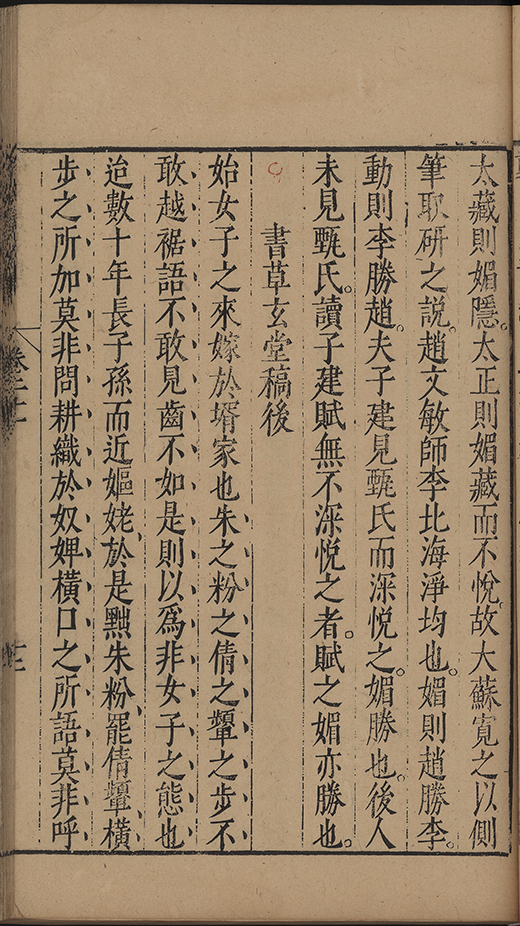 太藏則媚隱。太正則媚藏而不悅。故大蘇寬之以側
筆取研之說。趙文敏師李北海淨均也。媚則趙勝李。
動則李勝趙。夫子建見甄氏而深悅之。媚勝也。後人
未見甄氏。讀子建賦無不深悅之者。賦之媚亦勝也。
書草玄堂稿後
始女子之來嫁於壻家也朱之粉之倩之顰之步不
敢越裾語不敢見齒不如是則以爲非女子之態也
迨數十年長子孫而近嫗姥於是黜朱粉罷倩顰橫
步之所加莫非問耕織於奴婢橫口之所語莫非呼
卷二十一
十二